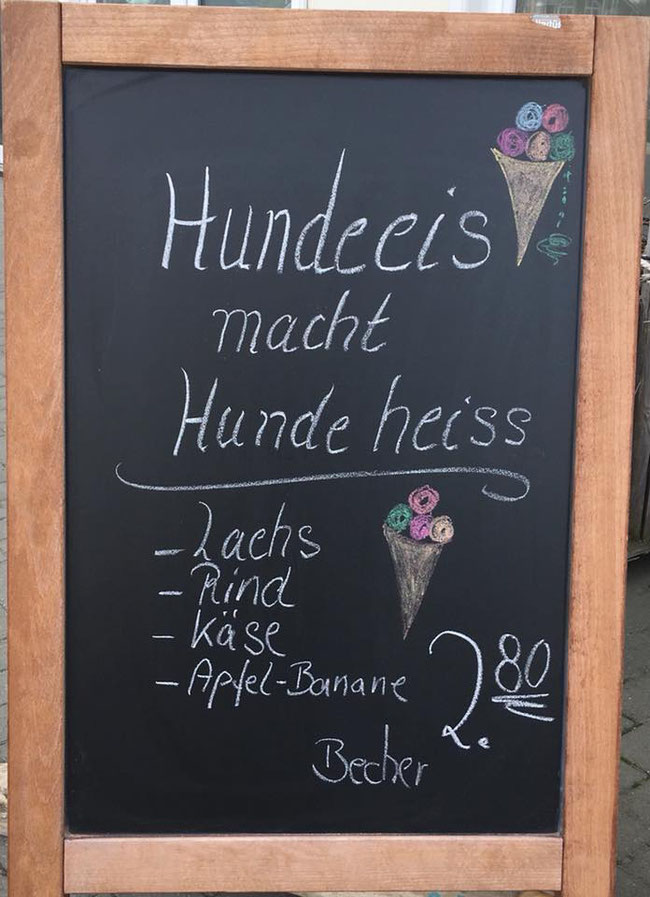 Hundeeis
macht
Hunde heiss
- Lachs
- Rind
- Käse
- Apfel-Banane
2.80
Becher